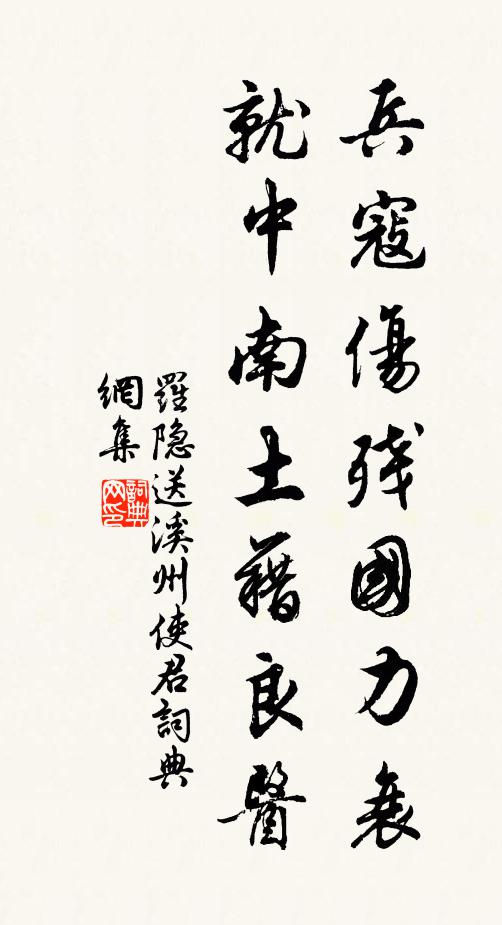 兵寇傷残國力衰
就中南土藉良醫
羅隐送溪州使君詞典
網集
詞典網印